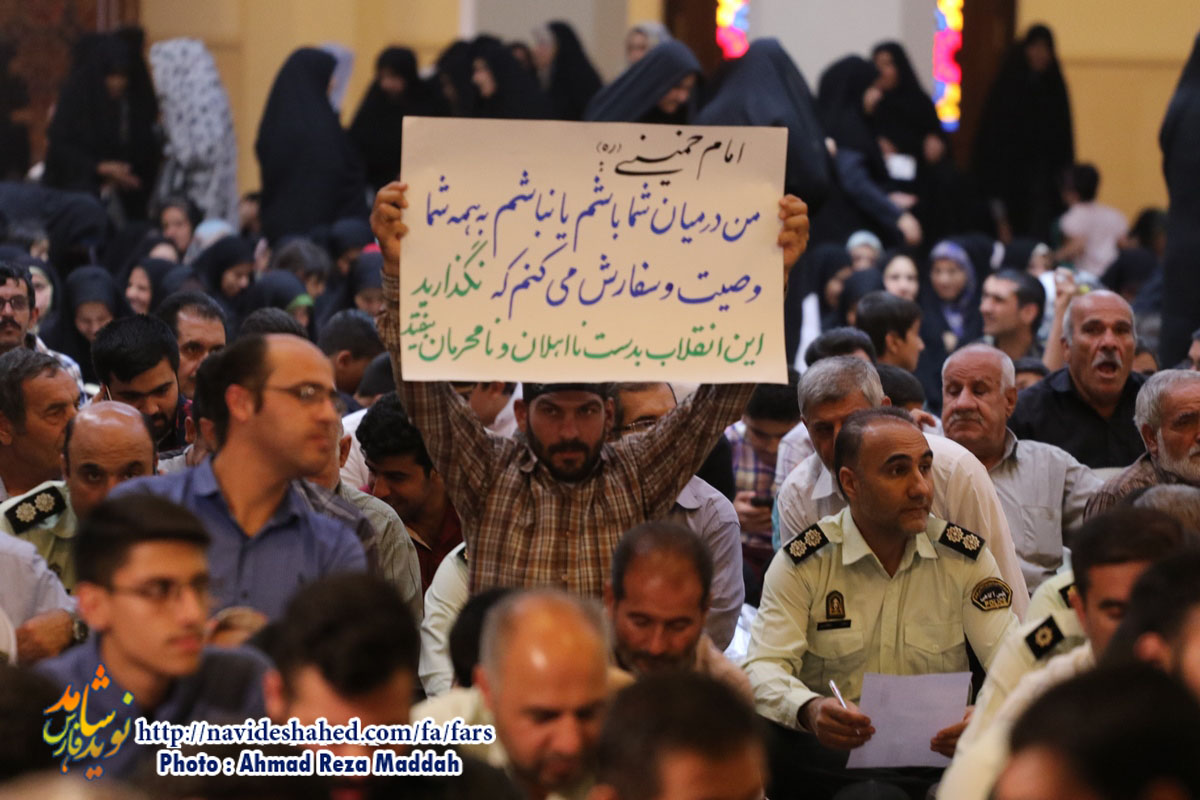 امام خمینی (ره)
من در میان شما باشم یا نباشم به همه شما
وصیت و سفارش می کنم که نگذارید
این انقلاب بدست نااهلان و نامحرمان بیفتد
نوید شاهد
فارس
http://navideshahed.com/fa/fars
Photo : Ahmad Reza Maddah